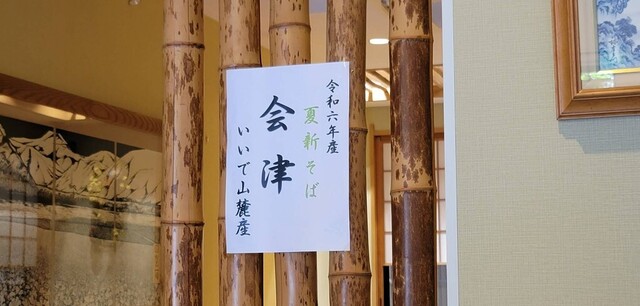 令和六年産
夏新そば
会津
いいで山麓産